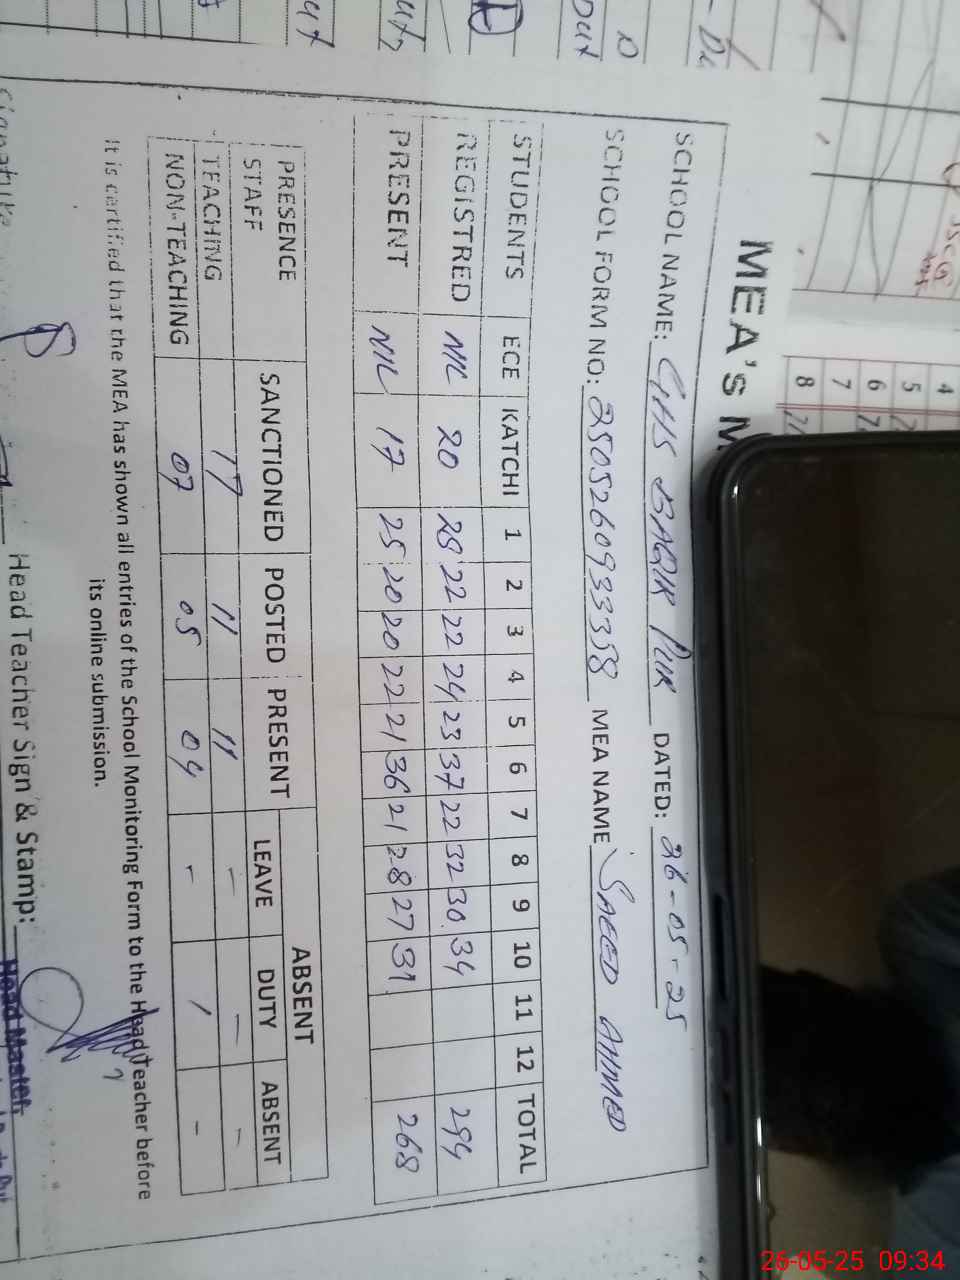 MEA'S M
SCHOOL NAME: GHS BAQIR PUR DATED: 26-05-25
SCHOOL FORM NO: 25052609333358 MEA NAME SAEED AHMED
STUDENTS ECE KATCHI 1 2 3 4 5 6 7 8 9 10 11 12 TOTAL
REGISTRED NIL 20 28 22 22 24 23 37 22 32 30 34 294
PRESENT NIL 17 25 20 20 22 21 36 21 28 27 31 268
PRESENCE SANCTIONED POSTED PRESENT ABSENT
STAFF LEAVE DUTY ABSENT
TEACHING 17 11 11 - - -
NON-TEACHING 07 05 04 - 1 -
It is certified that the MEA has shown all entries of the School Monitoring Form to the Head Teacher before
its online submission.
Head Teacher Sign & Stamp:
Head Master
4
5
6
7
8
26-05-25 09:34